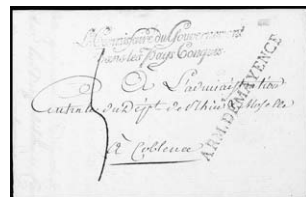 Le Commissaire du Gouvernement
dans les Pays Conquis
A L'administration
Centrale du dépt. de Rhin et Moselle
à Coblence
ARM.DE MAYENCE